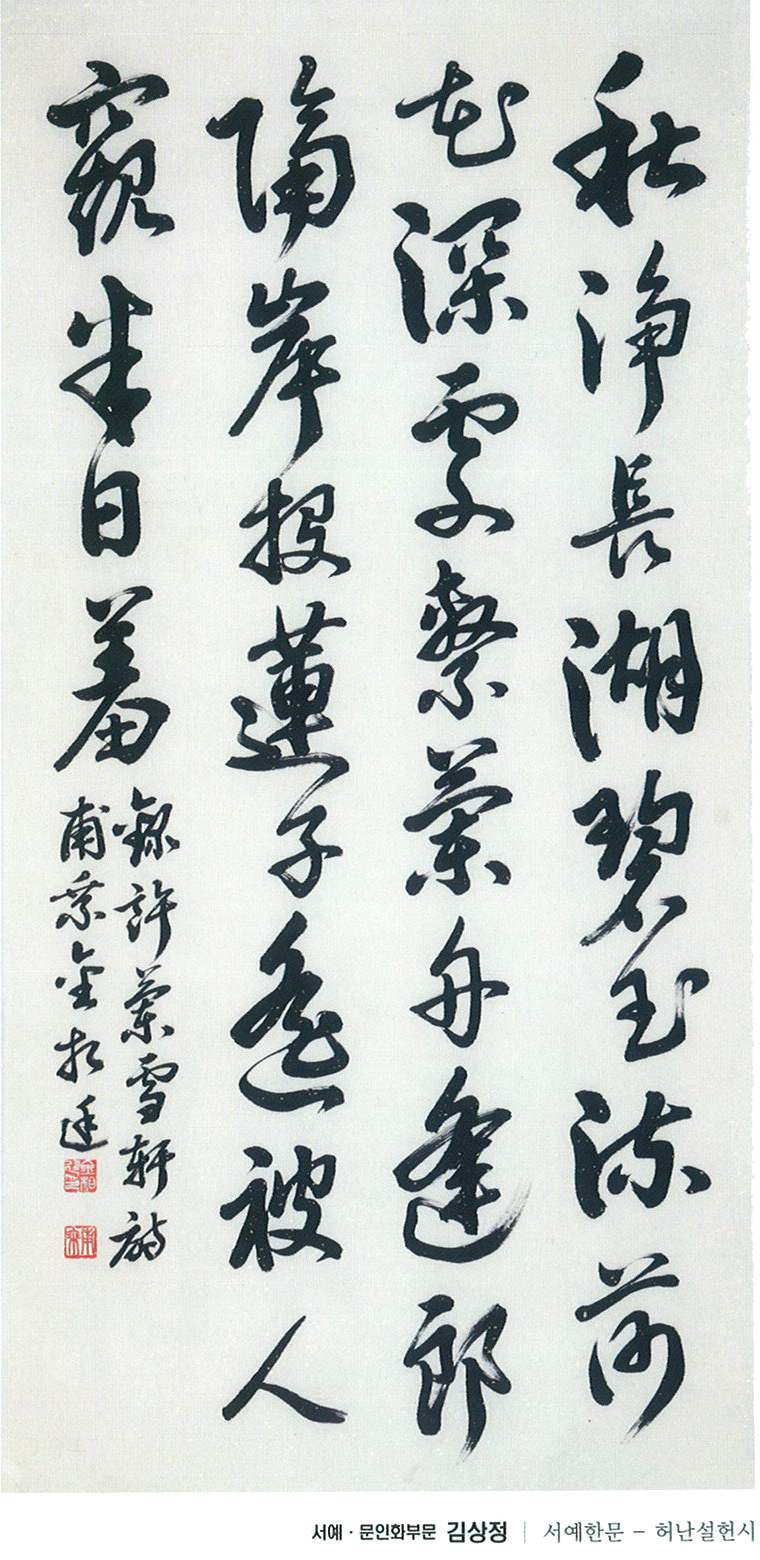 秋淨長湖碧玉流荷
花深處繫蘭舟逢郎
隔岸投蓮子遙被人
窺半日羞
錄許蘭雪軒詩
甫 金相廷
서예 · 문인화부문 김상정 | 서예한문 – 허난설헌시